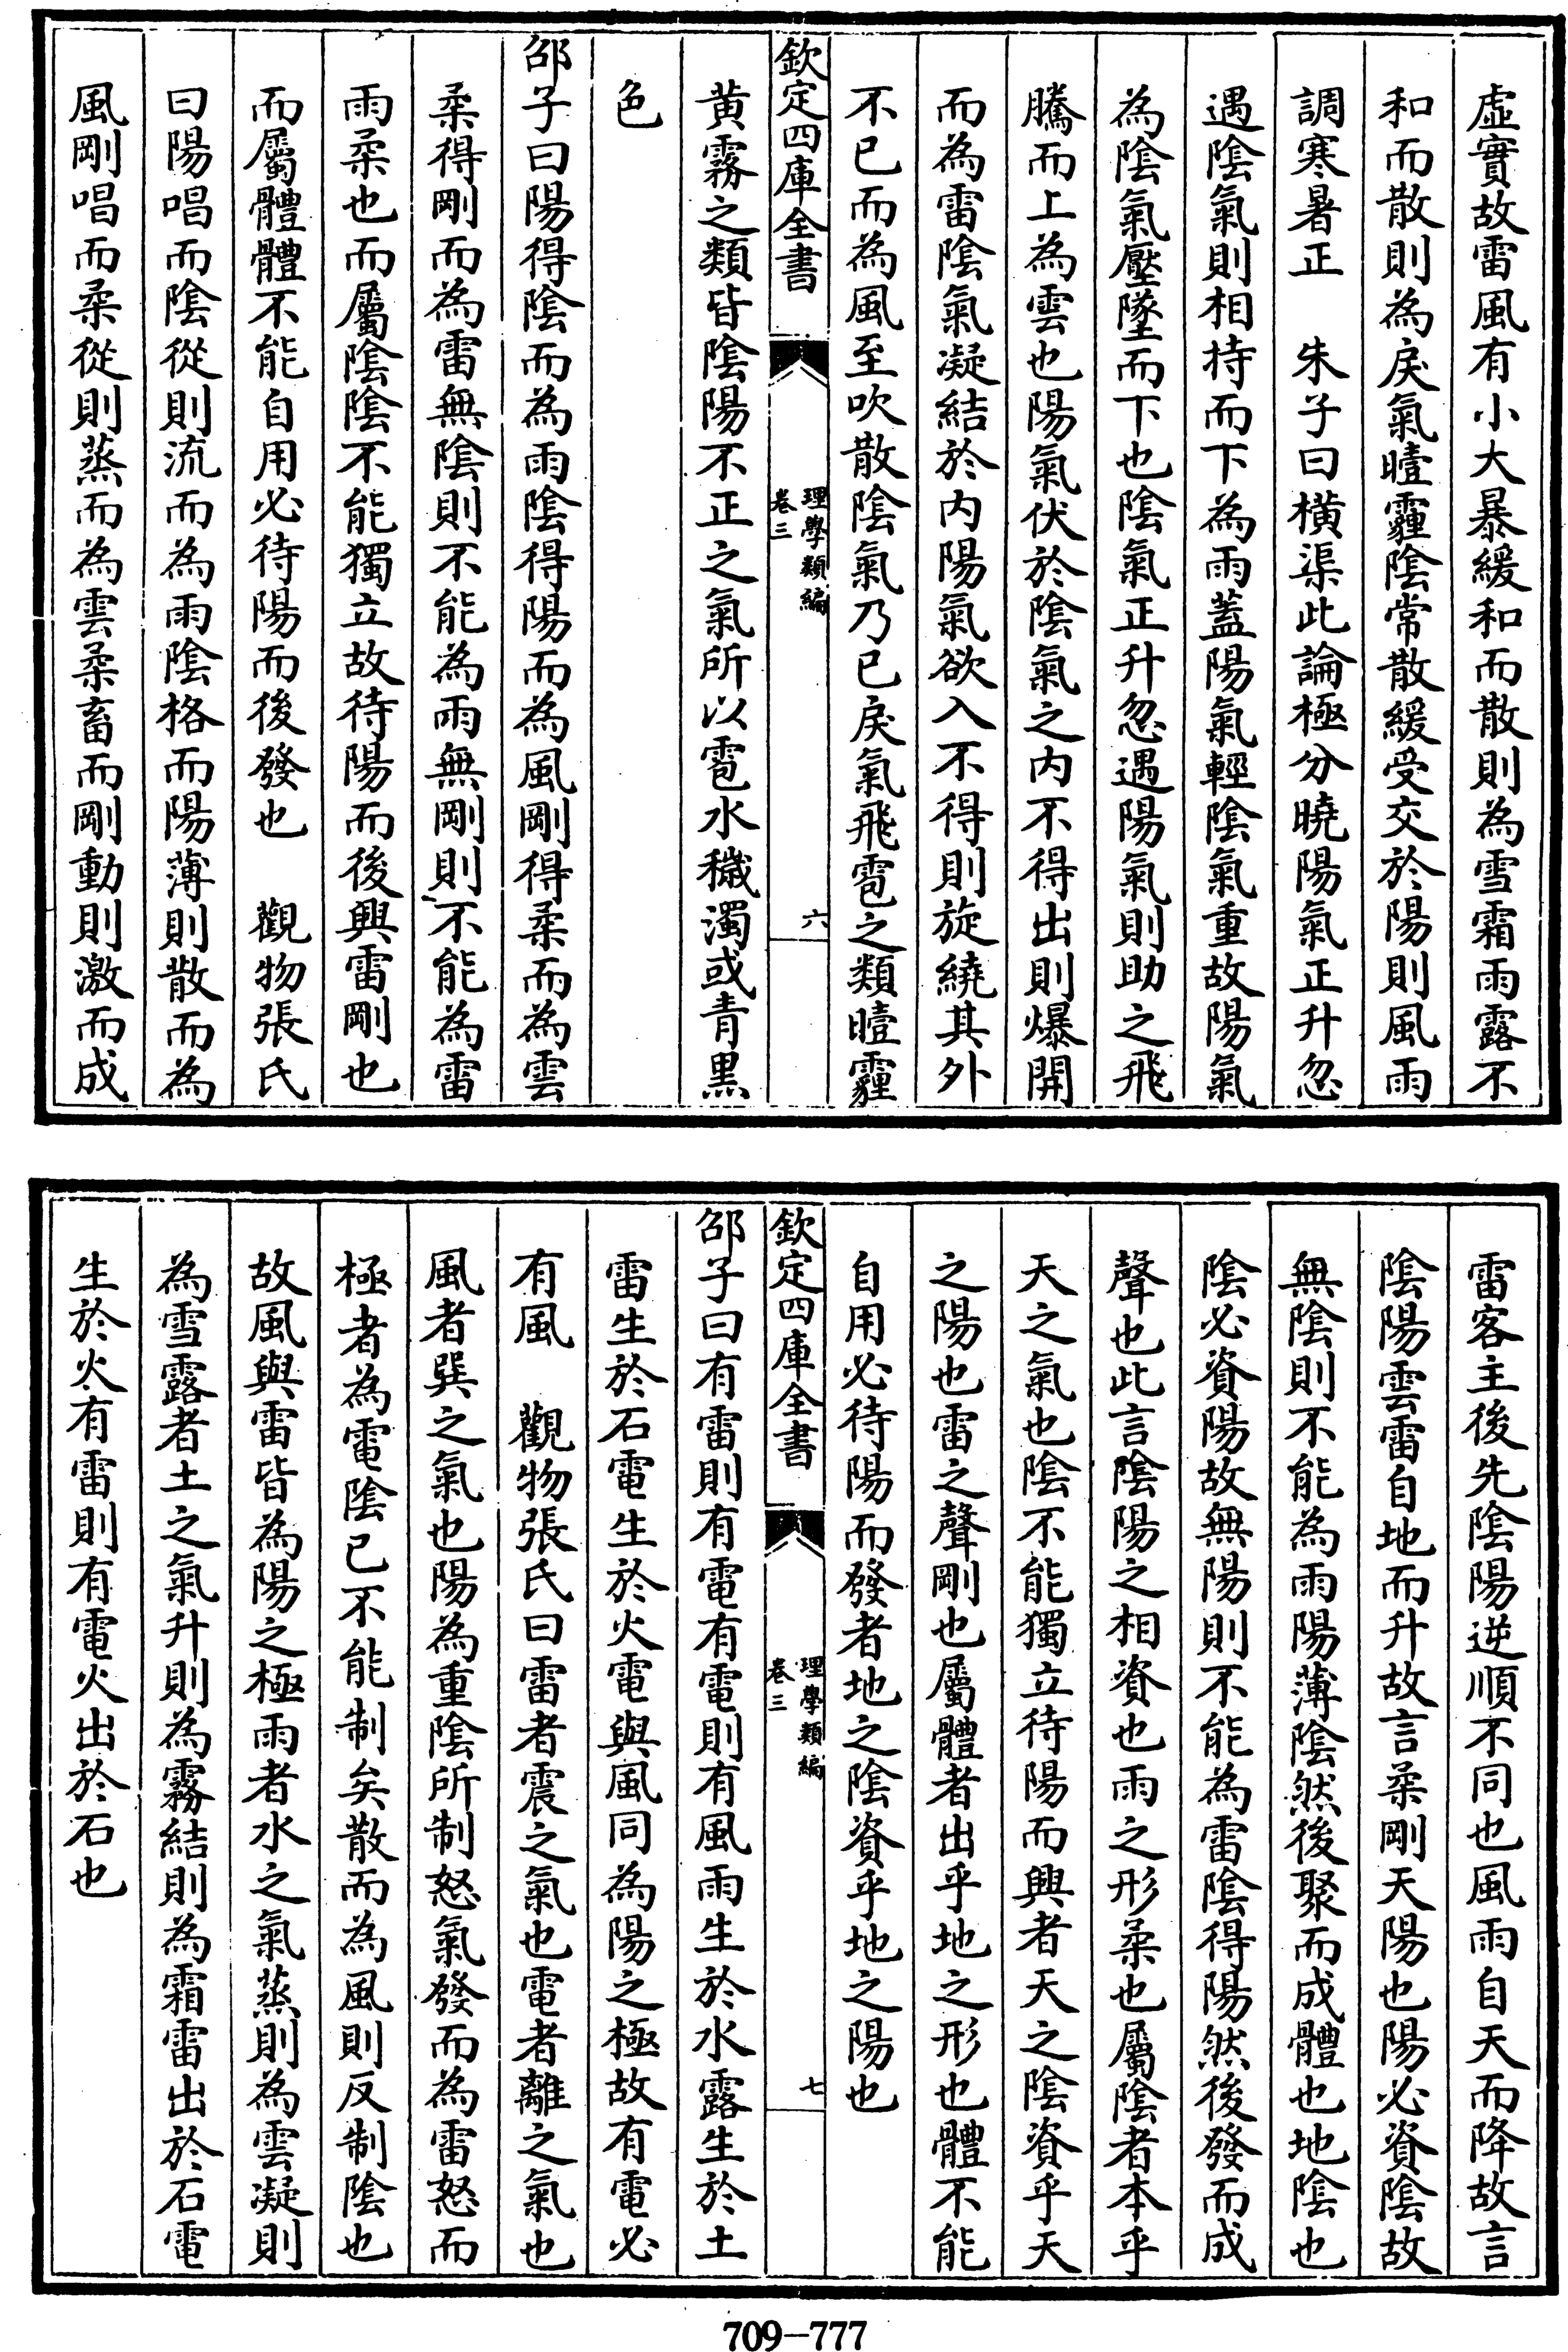 虛實故雷風有小大暴緩和而散則為雪霜雨露不
和而散則為戾氣曀霾陰常散緩受交於陽則風雨
調寒暑正　朱子曰橫渠此論極分曉陽氣正升忽
遇陰氣則相持而下為雨蓋陽氣輕陰氣重故陽氣
為陰氣壓墜而下也陰氣正升忽遇陽氣則助之飛
騰而上為雲也陽氣伏於陰氣之内不得出則爆開
而為雷陰氣凝結於内陽氣欲入不得則旋繞其外
不已而為風至吹散陰氣乃已戾氣飛雹之類曀霾
欽定四庫全書
理學類編
卷三
六
黄霧之類皆陰陽不正之氣所以雹水穢濁或青黒
色
邵子曰陽得陰而為雨陰得陽而為風剛得柔而為雲
柔得剛而為雷無陰則不能為雨無剛則不能為雷
雨柔也而屬陰陰不能獨立故待陽而後興雷剛也
而屬體體不能自用必待陽而後發也　觀物張氏
曰陽唱而陰從則流而為雨陰格而陽薄則散而為
風剛唱而柔從則蒸而為雲柔畜而剛動則激而成
雷客主後先陰陽逆順不同也風雨自天而降故言
陰陽雲雷自地而升故言柔剛天陽也陽必資陰故
無陰則不能為雨陽薄陰然後聚而成體也地陰也
陰必資陽故無陽則不能為雷陰得陽然後發而成
聲也此言陰陽之相資也雨之形柔也屬陰者本乎
天之氣也陰不能獨立待陽而興者天之陰資乎天
之陽也雷之聲剛也屬體者出乎地之形也體不能
自用必待陽而發者地之陰資乎地之陽也
欽定四庫全書
理學類編
卷三
七
邵子曰有雷則有電有電則有風雨生於水露生於土
雷生於石電生於火電與風同為陽之極故有電必
有風　觀物張氏曰雷者震之氣也電者離之氣也
風者巽之氣也陽為重陰所制怒氣發而為雷怒而
極者為電陰已不能制矣散而為風則反制陰也
故風與雷皆為陽之極雨者水之氣蒸則為雲凝則
為雪露者土之氣升則為霧結則為霜雷出於石電
生於火有雷則有電火出於石也
709-777